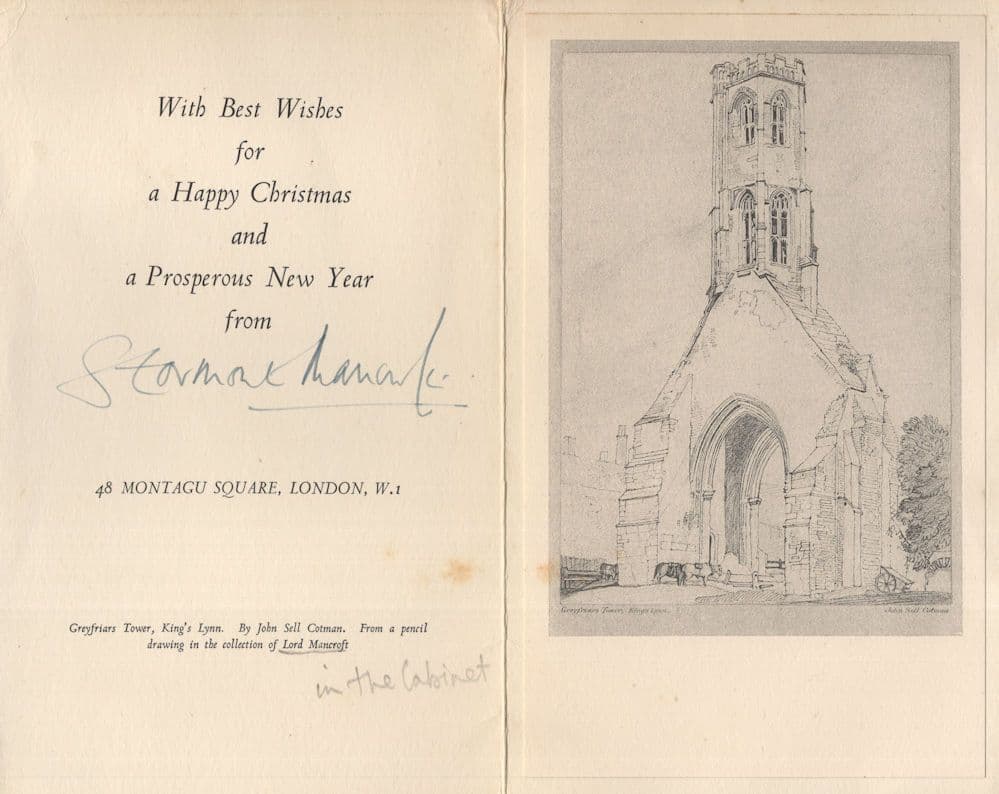 With Best Wishes
for
a Happy Christmas
and
a Prosperous New Year
from
Stormont Mancroft
48 MONTAGU SQUARE, LONDON, W.1
Greyfriars Tower, King's Lynn. By John Sell Cotman. From a pencil
drawing in the collection of Lord Mancroft
in the Cabinet
Greyfriars Tower, Kings Lynn.
John Sell Cotman